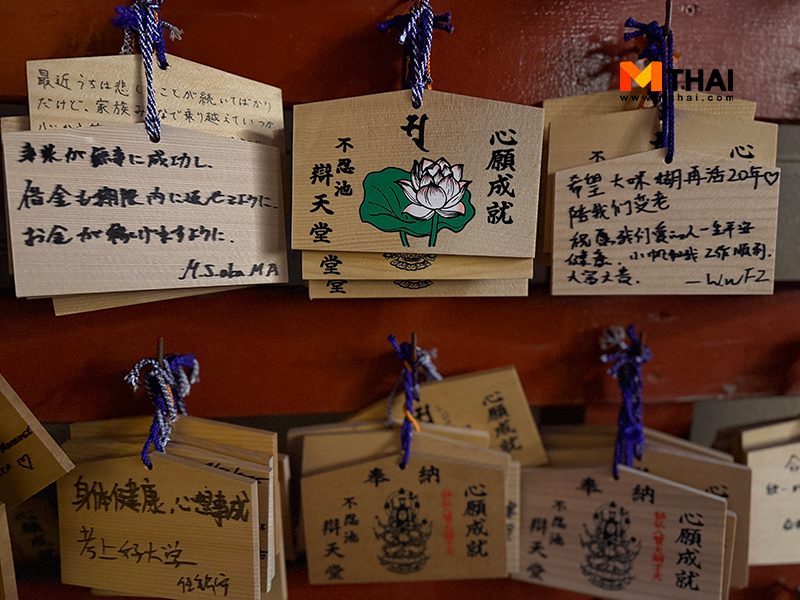 MTHAI
www.mthai.com
最近うちは悲しいことが続いてばかり
だけど、家族みんなで乗り越えていつか
事業が無事に成功し、
借金も期限内に返せてように
お金が稼げますように。
心願成就
不忍池
辯天堂
堂
堂
不
心
希望大咪 糊再活20年♡
陪我们变老
祝愿我们爱的人一生平安
健康。小帆和我工作顺利。
人富大贵。
—WWFZ
身体健康、心想事成
考上好大学
心願成就
奉納
心願成就
不忍池
辯天堂
奉納
心願成就
不忍池
辯天堂